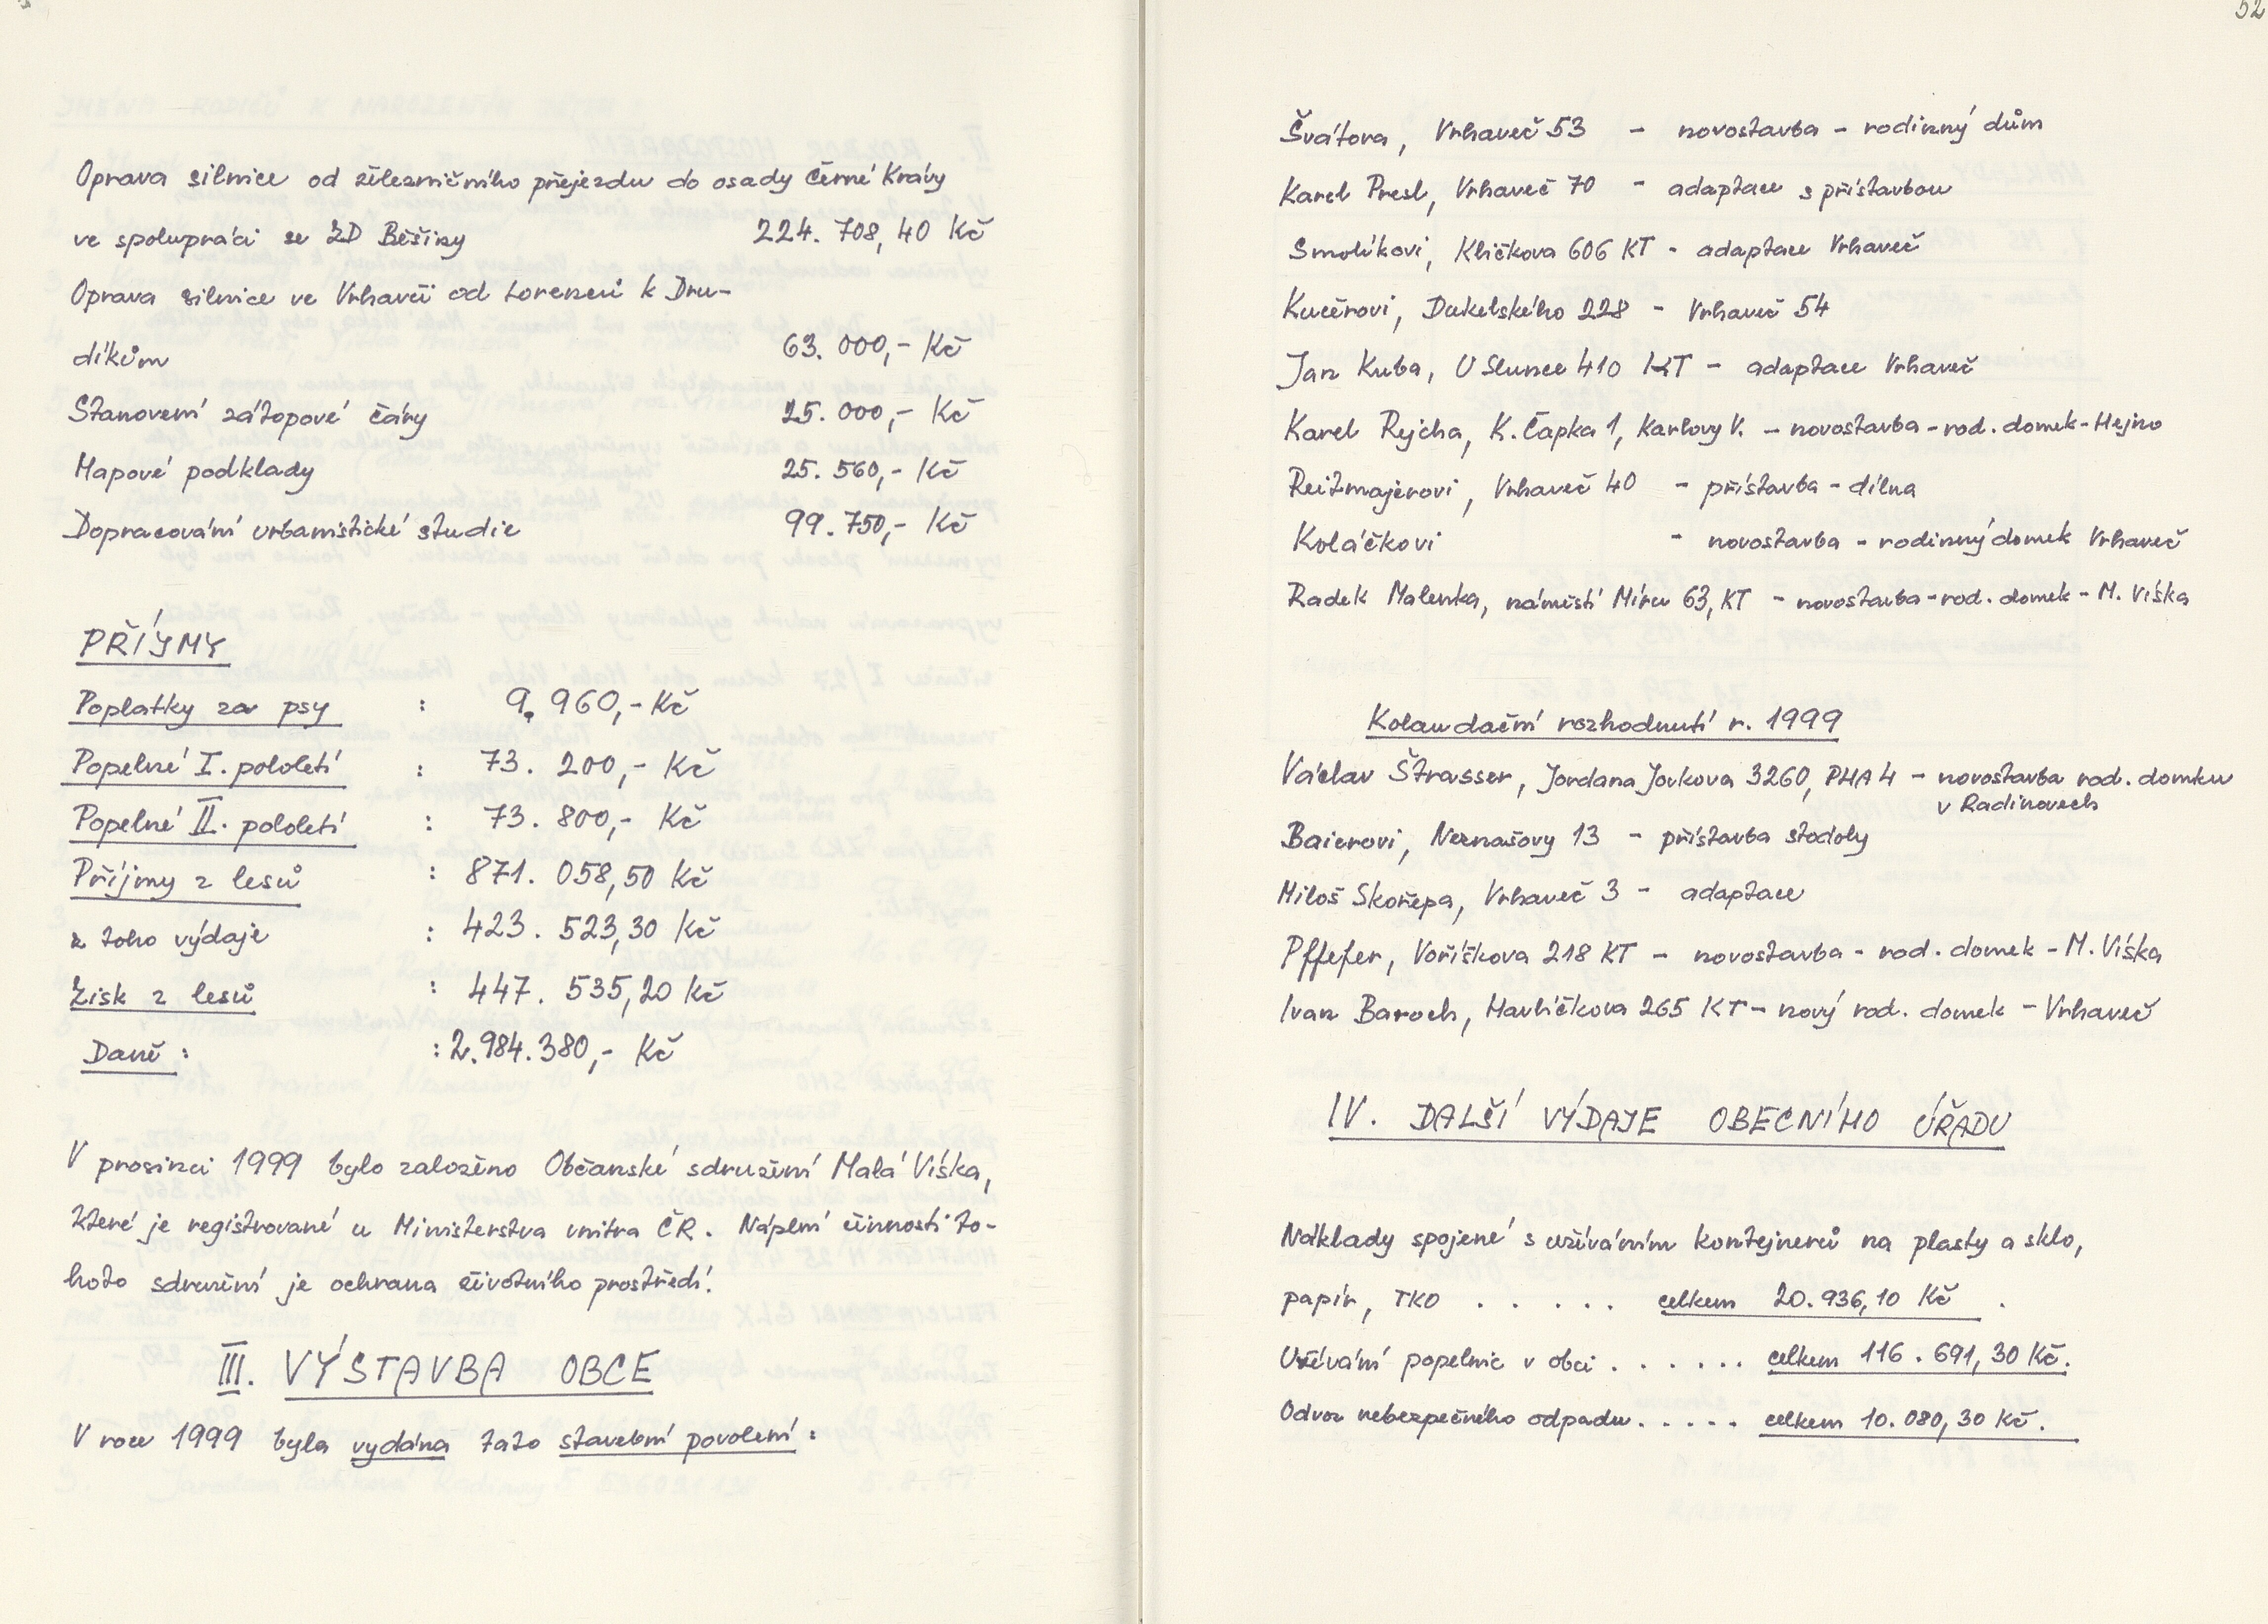 Oprava silnice od železničního přejezdu do osady Černé Krávy
ve spolupráci se ZD Běšiny 224.708,40 Kč
Oprava silnice ve Vrhavči od Lorenců k Dru-
díkům 63.000,- Kč
Stanovení zátopové čáry 25.000,- Kč
Mapové podklady 25.560,- Kč
Dopracování urbanistické studie 99.750,- Kč
PŘÍJMY
Poplatky za psy : 9.960,- Kč
Popelné I. pololetí : 73.200,- Kč
Popelné II. pololetí : 73.800,- Kč
Příjmy z lesů : 871.058,50 Kč
z toho výdaje : 423.523,30 Kč
Zisk z lesů : 447.535,20 Kč
Daně : : 2.984.380,- Kč
V prosinci 1999 bylo založeno Občanské sdružení Malá Víska,
které je registrované u Ministerstva vnitra ČR. Náplní činnosti to-
hoto sdružení je ochrana životního prostředí.
III. VÝSTAVBA OBCE
V roce 1999 byla vydána tato stavební povolení :
52
Švátova, Vrhaveč 53 - novostavba - rodinný dům
Karel Presl, Vrhaveč 70 - adaptace s přístavbou
Smolíkovi, Kličkova 606 KT - adaptace Vrhaveč
Kučerovi, Dukelského 228 - Vrhaveč 54
Jan Kuba, U Slunce 410 KT - adaptace Vrhaveč
Karel Rejcha, K. Čapka 1, Karlovy V. - novostavba - rod. domek - Hejno
Reitmajerovi, Vrhaveč 40 - přístavba - dílna
Koláčkovi - novostavba - rodinný domek Vrhaveč
Radek Malenka, náměstí Míru 63, KT - novostavba - rod. domek - M. Víska
Kolaudační rozhodnutí r. 1999
Václav Štrasser, Jordana Jovkova 3260, PHA 4 - novostavba rod. domku
v Radinovech
Baierovi, Neznašovy 13 - přístavba stodoly
Miloš Skořepa, Vrhaveč 3 - adaptace
Pffefer, Voříškova 218 KT - novostavba - rod. domek - M. Víska
Ivan Baroch, Havlíčkova 265 KT - nový rod. domek - Vrhaveč
IV. DALŠÍ VÝDAJE OBECNÍHO ÚŘADU
Náklady spojené s užíváním kontejnerů na plasty a sklo,
papír, TKO . . . . . celkem 20.936,10 Kč .
Užívání popelnic v obci . . . . . . celkem 116.691,30 Kč.
Odvoz nebezpečného odpadu . . . . . celkem 10.080,30 Kč.